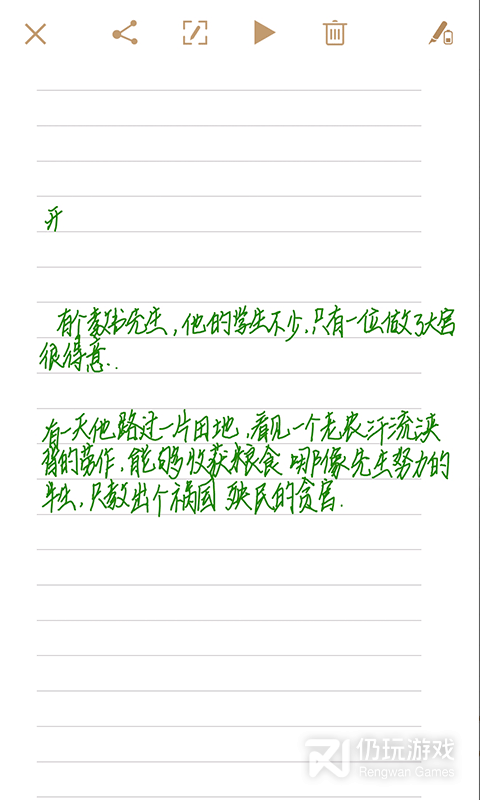 开
有个教书先生,他的学生不少.只有一位做了大官
很得意..
有一天他路过一片田地,看见一个老农汗流浃
背的劳作,能够收获粮食 哪像先生努力的
半生,只教出个祸国 殃民的贪官.
仍玩游戏
Rengwan Games